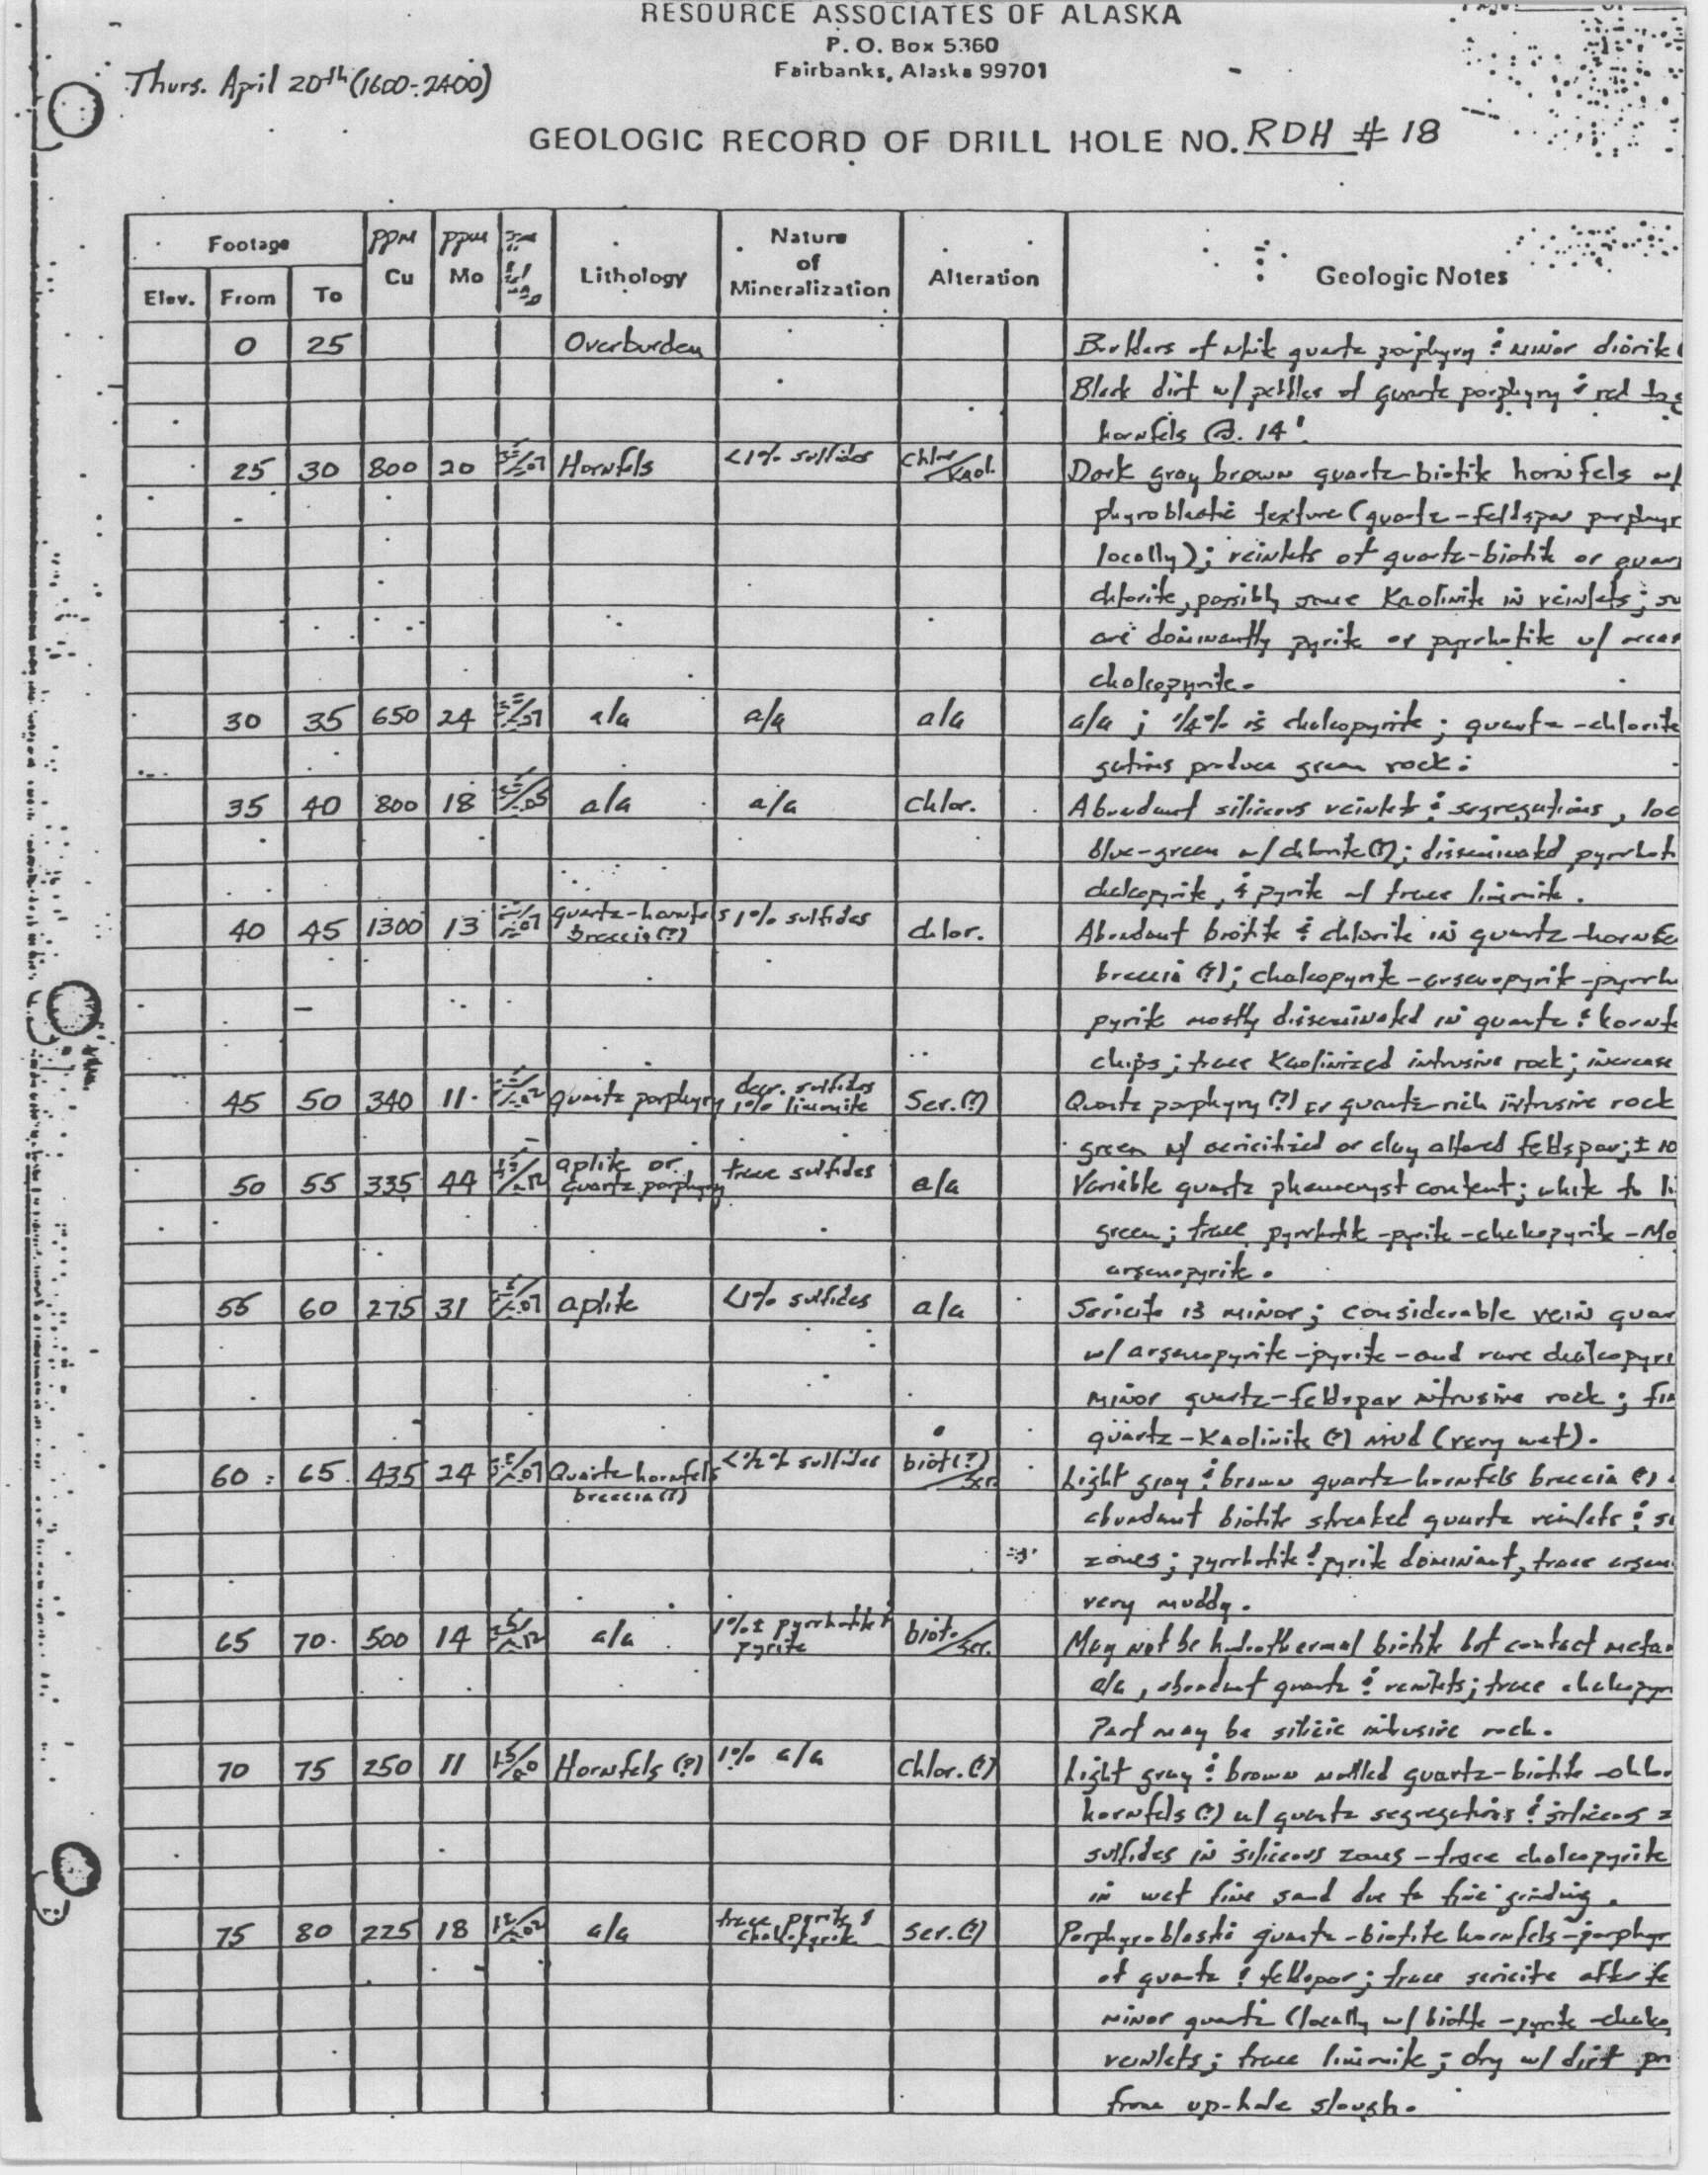 RESOURCE ASSOCIATES OF ALASKA
P. O. Box 5360
Fairbanks, Alaska 99701
Thurs. April 20th (1600-2400)
GEOLOGIC RECORD OF DRILL HOLE NO. RDH # 18
Footage ppm ppm Nature
Cu Mo Lithology of Alteration Geologic Notes
Elev. From To Mineralization
0 25 Overburden Boulders of white quartz porphyry & minor diorite
Black dirt w/ pebbles of quartz porphyry & red
hornfels @ 14'.
25 30 800 20 Hornfels <1% sulfides Chlor/Kaol. Dark gray brown quartz-biotite hornfels w/
phyroblastic texture (quartz-feldspar porphyr
locally); veinlets of quartz-biotite or quar
chlorite, possibly some Kaolinite in veinlets; su
are dominantly pyrite or pyrrhotite w/
chalcopyrite.
30 35 650 24 a/a a/a a/a a/a ; 1/4% is chalcopyrite; quartz-chlorite
gations produce green rock.
35 40 800 18 a/a a/a Chlor. Abundant siliceous veinlets & segregations, loc
blue-green w/ chlorite(?); disseminated pyrrhoti
chalcopyrite, & pyrite w/ trace limonite.
40 45 1300 13 quartz-hornfels 1% sulfides chlor. Abundant biotite & chlorite in quartz-hornfe
breccia(?) breccia (?); chalcopyrite-arsenopyrite-pyrrh
pyrite mostly disseminated in quartz & hornfe
chips; trace Kaolinized intrusive rock; increase
45 50 340 11 quartz porphyry decr. sulfides 1% limonite Ser.(?) Quartz porphyry (?) or quartz-rich intrusive rock
green w/ sericitized or clay altered feldspar; ± 10
50 55 335 44 aplite or quartz porphyry trace sulfides a/a Variable quartz phenocryst content; white to li
green; trace pyrrhotite-pyrite-chalcopyrite-Mo
arsenopyrite.
55 60 275 31 aplite <1% sulfides a/a Sericite is minor; considerable vein quar
w/ arsenopyrite-pyrite-and rare chalcopyri
minor quartz-feldspar intrusive rock; fin
quartz-Kaolinite (?) mud (very wet).
60 65 435 24 Quartz hornfels <1/2% sulfides biot(?)/Ser. Light gray & brown quartz-hornfels breccia (?)
breccia(?) abundant biotite streaked quartz veinlets & si
zones; pyrrhotite & pyrite dominant, trace arsen
very muddy.
65 70 500 14 a/a 1%± pyrrhotite & pyrite biot./Ser. May not be hydrothermal biotite but contact meta
a/a, abundant quartz & veinlets; trace chalcopyr
Part may be silicic intrusive rock.
70 75 250 11 Hornfels (?) 1% a/a Chlor.(?) Light gray & brown mottled quartz-biotite-chlor
hornfels (?) w/ quartz segregations & siliceous z
sulfides in siliceous zones-trace chalcopyrite
in wet fine sand due to fine grinding.
75 80 225 18 a/a trace pyrite & chalcopyrite Ser.(?) Porphyroblastic quartz-biotite hornfels-porphyr
of quartz & feldspar; trace sericite after fe
minor quartz (locally w/ biotite-pyrite-chalco
veinlets; trace limonite; dry w/ dirt
from up-hole slough.